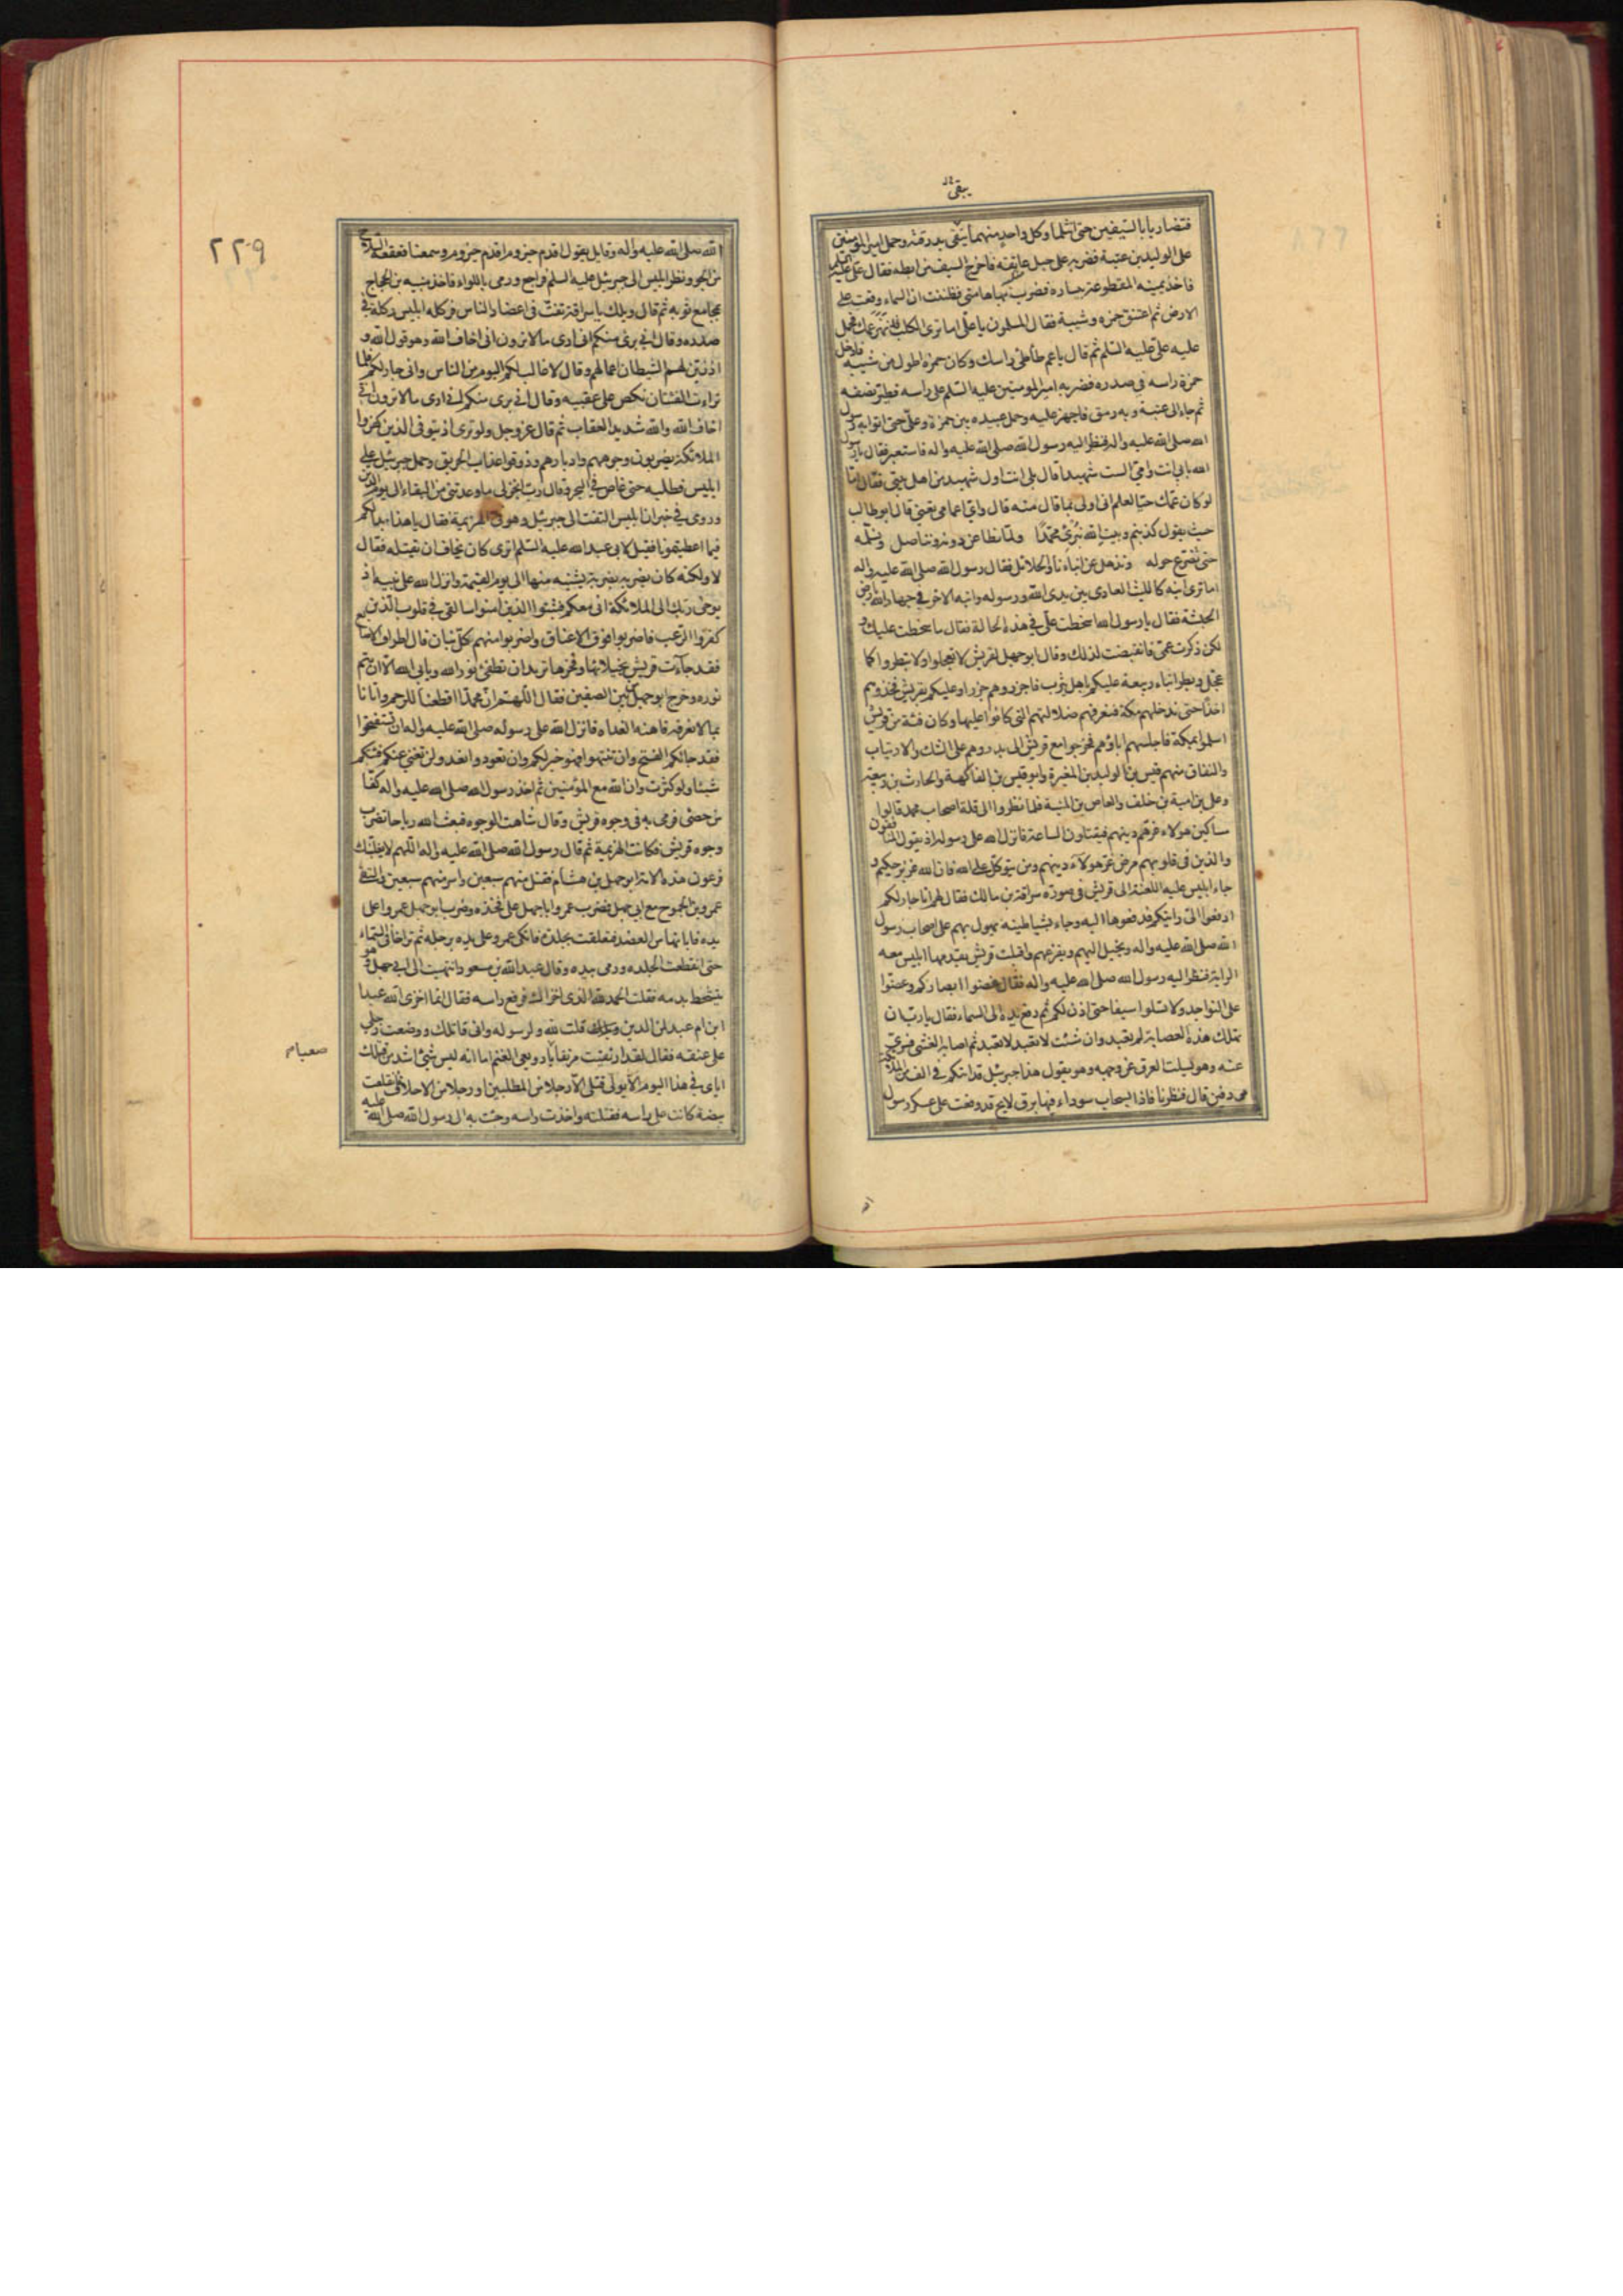 يتقى
فتضاربا بالسيفين حتى انثلما وكل واحد منهما يتقى بدرقته وحمل امير المؤمنين
على الوليد بن عتبة فضربه على حبل عاتقه فاخرج السيف من ابطه فقال على عليه السلم
فاخذ يمينه المقطوعة بيساره فضرب بها هامتى فظننت ان السماء وقعت على
الارض ثم اعتنق حمزه وشيبة فقال المسلمون يا على اما ترى الكلب قد عمك فحمل
عليه على عليه السلم ثم قال يا عم طاطئ راسك وكان حمزه اطول من شيبه فادخل
حمزة راسه فى صدره فضربه امير المومنين عليه السلم على راسه فطير نصفه
ثم جاء الى عتبة وبه رمق فاجهز عليه وحمل عبيده بين حمزة وعلى حتى اتوا به رسول
الله صلى الله عليه واله فنظر اليه رسول الله صلى الله عليه واله فاستعبر فقال يا رسول
الله بابى انت وامى الست شهيدا قال بلى انت اول شهيد من اهل بيتى فقال اما
لو كان عمك حيا لعلم انى اولى بما قال منه قال واى اعمامى تعنى قال ابو طالب
حيث يقول كذبتم وبيت الله نبزى محمدا ولما نطاعن دونه ونناضل ونسلمه
حتى نصرع حوله ونذهل عن ابنائنا والحلائل فقال رسول الله صلى الله عليه واله
اما ترى ابنه كالليث العادى بين يدى الله ورسوله وابنه الاخر فى جهاد الله بارض
الحبشة فقال يا رسول الله اسخطت على فى هذه الحالة فقال ما سخطت عليك و
لكن ذكرت عمى فانقبضت لذلك وقال ابو جهل لقريش لا تعجلوا ولا تبطروا كما
عجل وبطر ابناء ربيعة عليكم باهل يثرب فاجزروهم جزرا وعليكم بقريش فخذوهم
اخذا حتى ندخلهم مكة فنعرفهم ضلالتهم التى كانوا عليها وكان فئة من قريش
اسلموا بمكة فاجلسهم اباؤهم فخرجوا مع قريش الى بدر وهم على الشك والارتياب
والنفاق منهم قيس بن الوليد بن المغيرة وابو قيس بن الفاكهة والحارث بن ربيعة
وعلى بن امية بن خلف والعاص بن المنبه فلما نظروا الى قلة اصحاب محمد قالوا
مساكين هولاء غرهم دينهم فيقتلون الساعة فانزل الله على رسوله اذ يقول المنافقون
والذين فى قلوبهم مرض غر هولاء دينهم ومن يتوكل على الله فان الله عزيز حكيم و
جاء ابليس عليه اللعنة الى قريش فى صورة سراقة بن مالك فقال لهم انا جار لكم
ادفعوا الى رايتكم فدفعوها اليه وجاء بشياطينه يهول بهم على اصحاب رسول
الله صلى الله عليه واله ويخيل اليهم ويفزعهم واقبلت قريش يقدمها ابليس معه
الراية فنظر اليه رسول الله صلى الله عليه واله فقال غضوا ابصاركم وعضوا
على النواجد ولا تسلوا سيفا حتى اذن لكم ثم رفع يده الى السماء فقال يا رب ان
تهلك هذه العصابة لم تعبد وان شئت لا تعبد لا تعبد ثم اصابه الغشى فسرى
عنه وهو يسلت العرق عن وجهه وهو يقول هذا جبرئيل قد اتاكم فى الف من الملائكة
مردفين قال فنظرنا فاذا بسحاب سوداء فيها برق لايح قد وقعت على عسكر رسول
٢٢٩
الله صلى الله عليه واله وقايل يقول اقدم حيزوم اقدم حيزوم وسمعنا قعقعة السلاح
من الجو ونظر ابليس الى جبرئيل عليه السلم فراجع ورمى باللواء فاخذ منبه بن الحجاج
بمجامع ثوبه ثم قال ويلك يا سراقة تفت فى اعضاد الناس فركله ابليس ركلة فى
صدره وقال انى برئ منكم انى ارى ما لا ترون انى اخاف الله وهو قول الله و
اذ زين لهم الشيطان اعمالهم وقال لا غالب لكم اليوم من الناس وانى جار لكم فلما
تراءت الفئتان نكص على عقبيه وقال انى برى منكم انى ارى ما لا ترون انى
اخاف الله والله شديد العقاب ثم قال عز وجل ولو ترى اذ يتوفى الذين كفروا
الملائكة يضربون وجوههم وادبارهم وذوقوا عذاب الحريق وحمل جبرئيل على
ابليس فطلبه حتى غاص فى البحر وقال رب انجز لى ما وعدتنى من البقاء الى يوم الدين
وروى فى خبر ان ابليس التفت الى جبرئيل وهو فى الهزيمة فقال يا هذا بدا لكم
فيما اعطيتمونا فقيل لابى عبد الله عليه السلم اترى كان يخاف ان يقتله فقال
لا ولكنه كان يضربه بضربة يشينه منها الى يوم القيمة وانزل الله على نبيه اذ
يوحى ربك الى الملائكة انى معكم فثبتوا الذين امنوا سالقى فى قلوب الذين
كفروا الرعب فاضربوا فوق الاعناق واضربوا منهم كل بنان قال اطراف الاصابع
فقد جاءت قريش بخيلائها وفخرها تريد ان تطفئ نور الله ويابى الله الا ان يتم
نوره وخرج ابو جهل من بين الصفين فقال اللهم ان محمدا اقطعنا للرحم واتانا
بما لا نعرفه فاهنه الغداه فانزل الله على رسوله صلى الله عليه واله ان تستفتحوا
فقد جائكم الفتح وان تنتهوا فهو خير لكم وان تعودوا نعد ولن تغنى عنكم فئتكم
شيئا ولو كثرت وان الله مع المؤمنين ثم اخذ رسول الله صلى الله عليه واله كفا
من حصى فرمى به فى وجوه قريش وقال شاهت الوجوه فبعث الله رياحا تضرب
وجوه قريش فكانت الهزيمة ثم قال رسول الله صلى الله عليه واله اللهم لا يفلتنك
فرعون هذه الامة ابو جهل بن هشام فقتل منهم سبعين واسر منهم سبعين والتقى
عمرو بن الجموح مع ابى جهل فضرب عمرو ابا جهل على فخذه وضرب ابو جهل عمروا على
يده فابانها من العضد فتعلقت بجلدة فاتكى عمرو على يده برجله ثم تراخى الى السماء
حتى انقطعت الجلده ورمى بيده وقال عبد الله بن مسعود انتهيت الى ابى جهل وهو
يتشحط بدمه فقلت الحمد لله الذى اخزاك فرفع راسه فقال انما اخزى الله عبدا
ابن ام عبد لمن الدين قلت لله ولرسوله وانى قاتلك ووضعت رجلى
على عنقه فقال لقد ارتقيت مرتقا يا رويعى الغنم اما انه ليس شئ اشد من قتلك
صعبام
اياى فى هذا اليوم الا تولى قتلى الا رجلا من المطلبيين او رجلا من الاحلاف فانقلعت
بيضة كانت على راسه فقتلته واخذت راسه وجئت به الى رسول الله صلى الله عليه